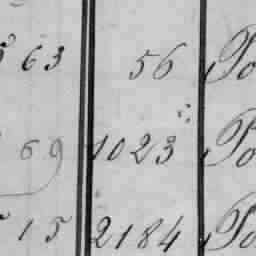 63 56 Po
69 1023 Po
15 2184 Po